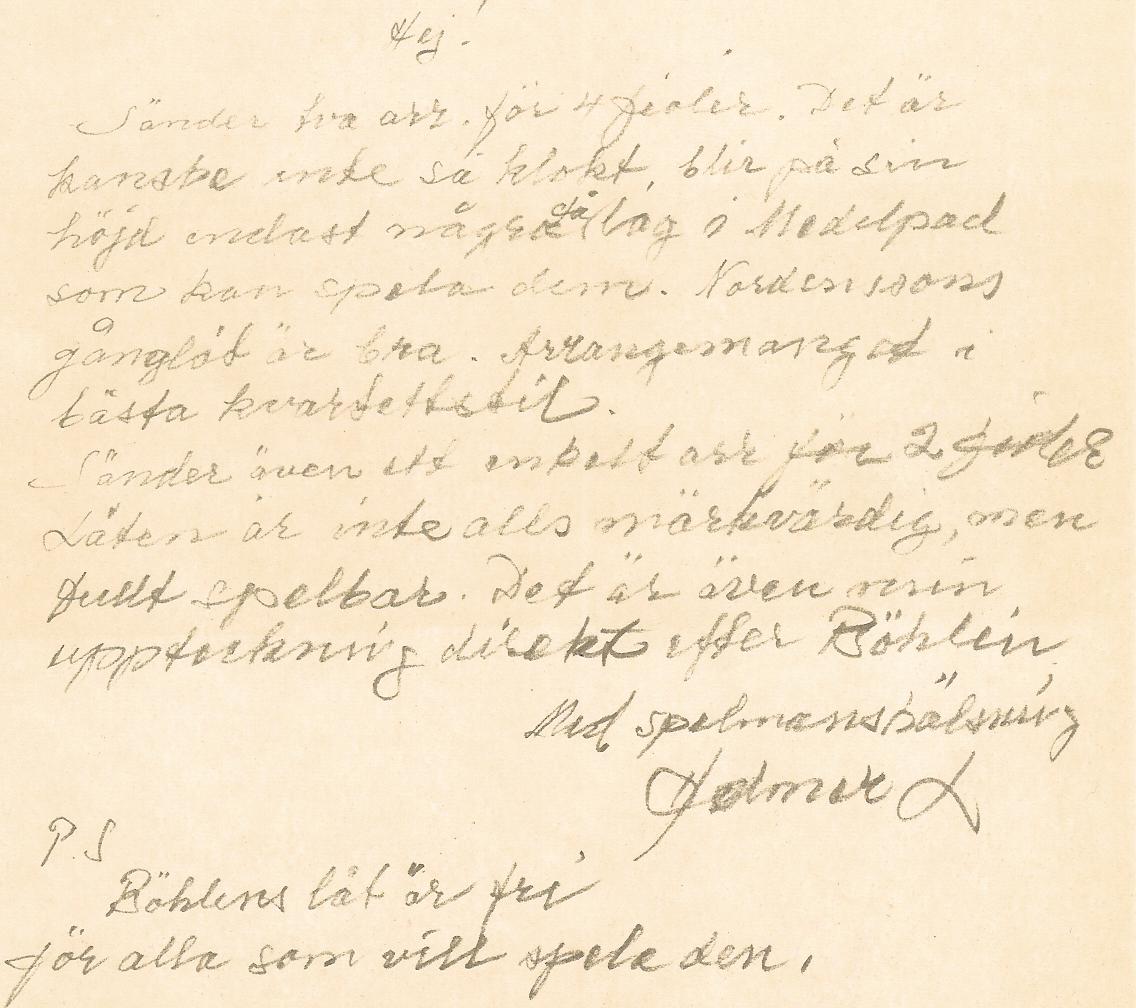 Hej!
Sänder två arr. för 4 fioler. Det är
kanske inte så klokt, blir på sin
höjd endast några få lag i Medelpad
som kan spela dem. Nordenssons
gånglåt är bra. Arrangemanget i
bästa kvartettstil.
Sänder även ett enkelt arr för 2 fioler
Låten är inte alls märkvärdig, men
fullt spelbar. Det är även min
uppteckning direkt efter Böhlin
Med spelmanshälsning
Helmer L
P.S
Böhlens låt är fri
för alla som vill spela den.